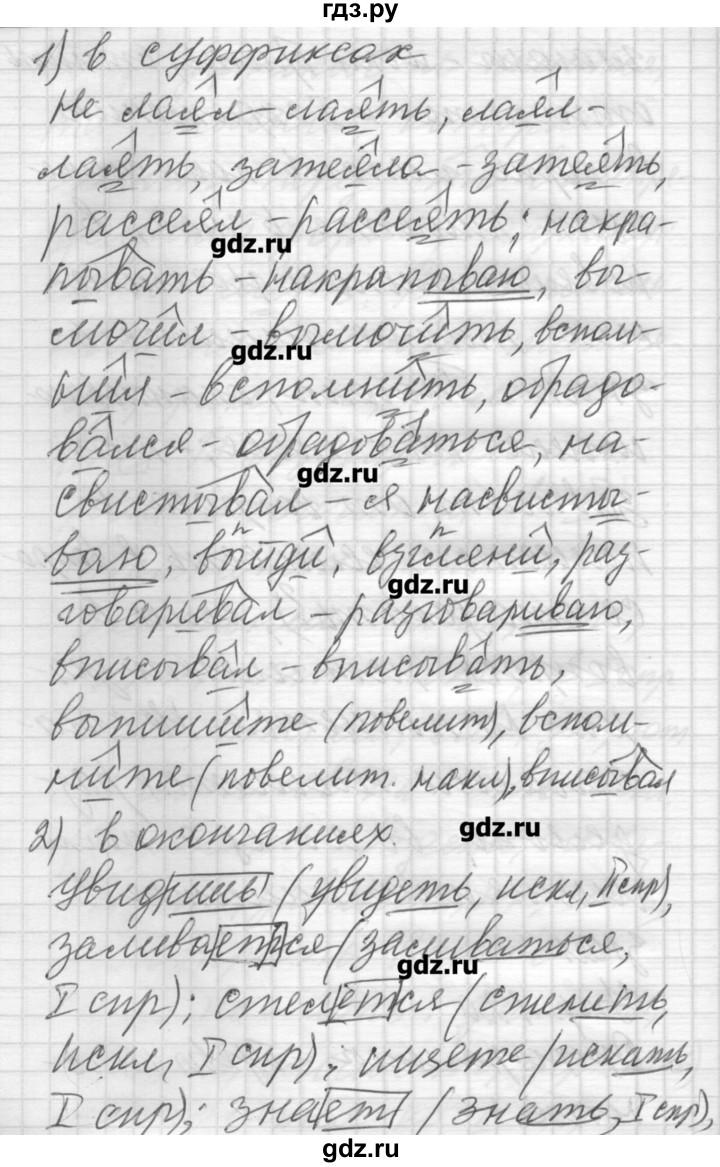 гдз.ру
1) в суффиксах
Не лаял - лаять, лаял -
лаять, затеяла - затеять,
рассеял - рассеять; накра-
gdz.ru
пывать - накрапываю, вы-
мочил - вымочить, вспом-
gdz.ru
нил - вспомнить, обрадо-
вался - обрадоваться, на-
gdz.ru
свистывал - я насвисты-
ваю, выйди, взгляни, раз-
gdz.ru
говаривал - разговариваю,
вписывал - вписывать,
выпишите (повелит), вспом-
ните (повелит. накл), вписывал
2) в окончаниях.
gdz.ru
Увидишь (увидеть, искл, II спр),
заливается (заливаться,
gdz.ru
I спр); стелется (стелить,
искл, I спр); ищете (искать,
I спр); знает (знать, I спр),
gdz.ru